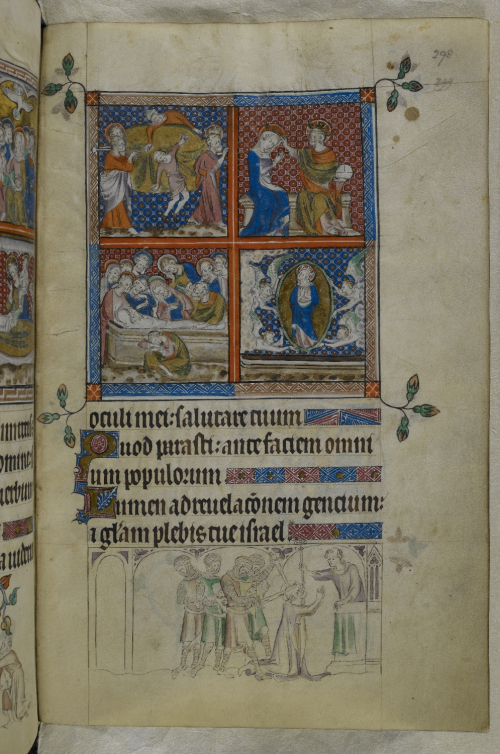 298
oculi mei: salutare tuum
Quod parasti: ante faciem omni
um populorum
Lumen ad reuelac̃onem gencium:
⁊ gl̃am plebis tue israel